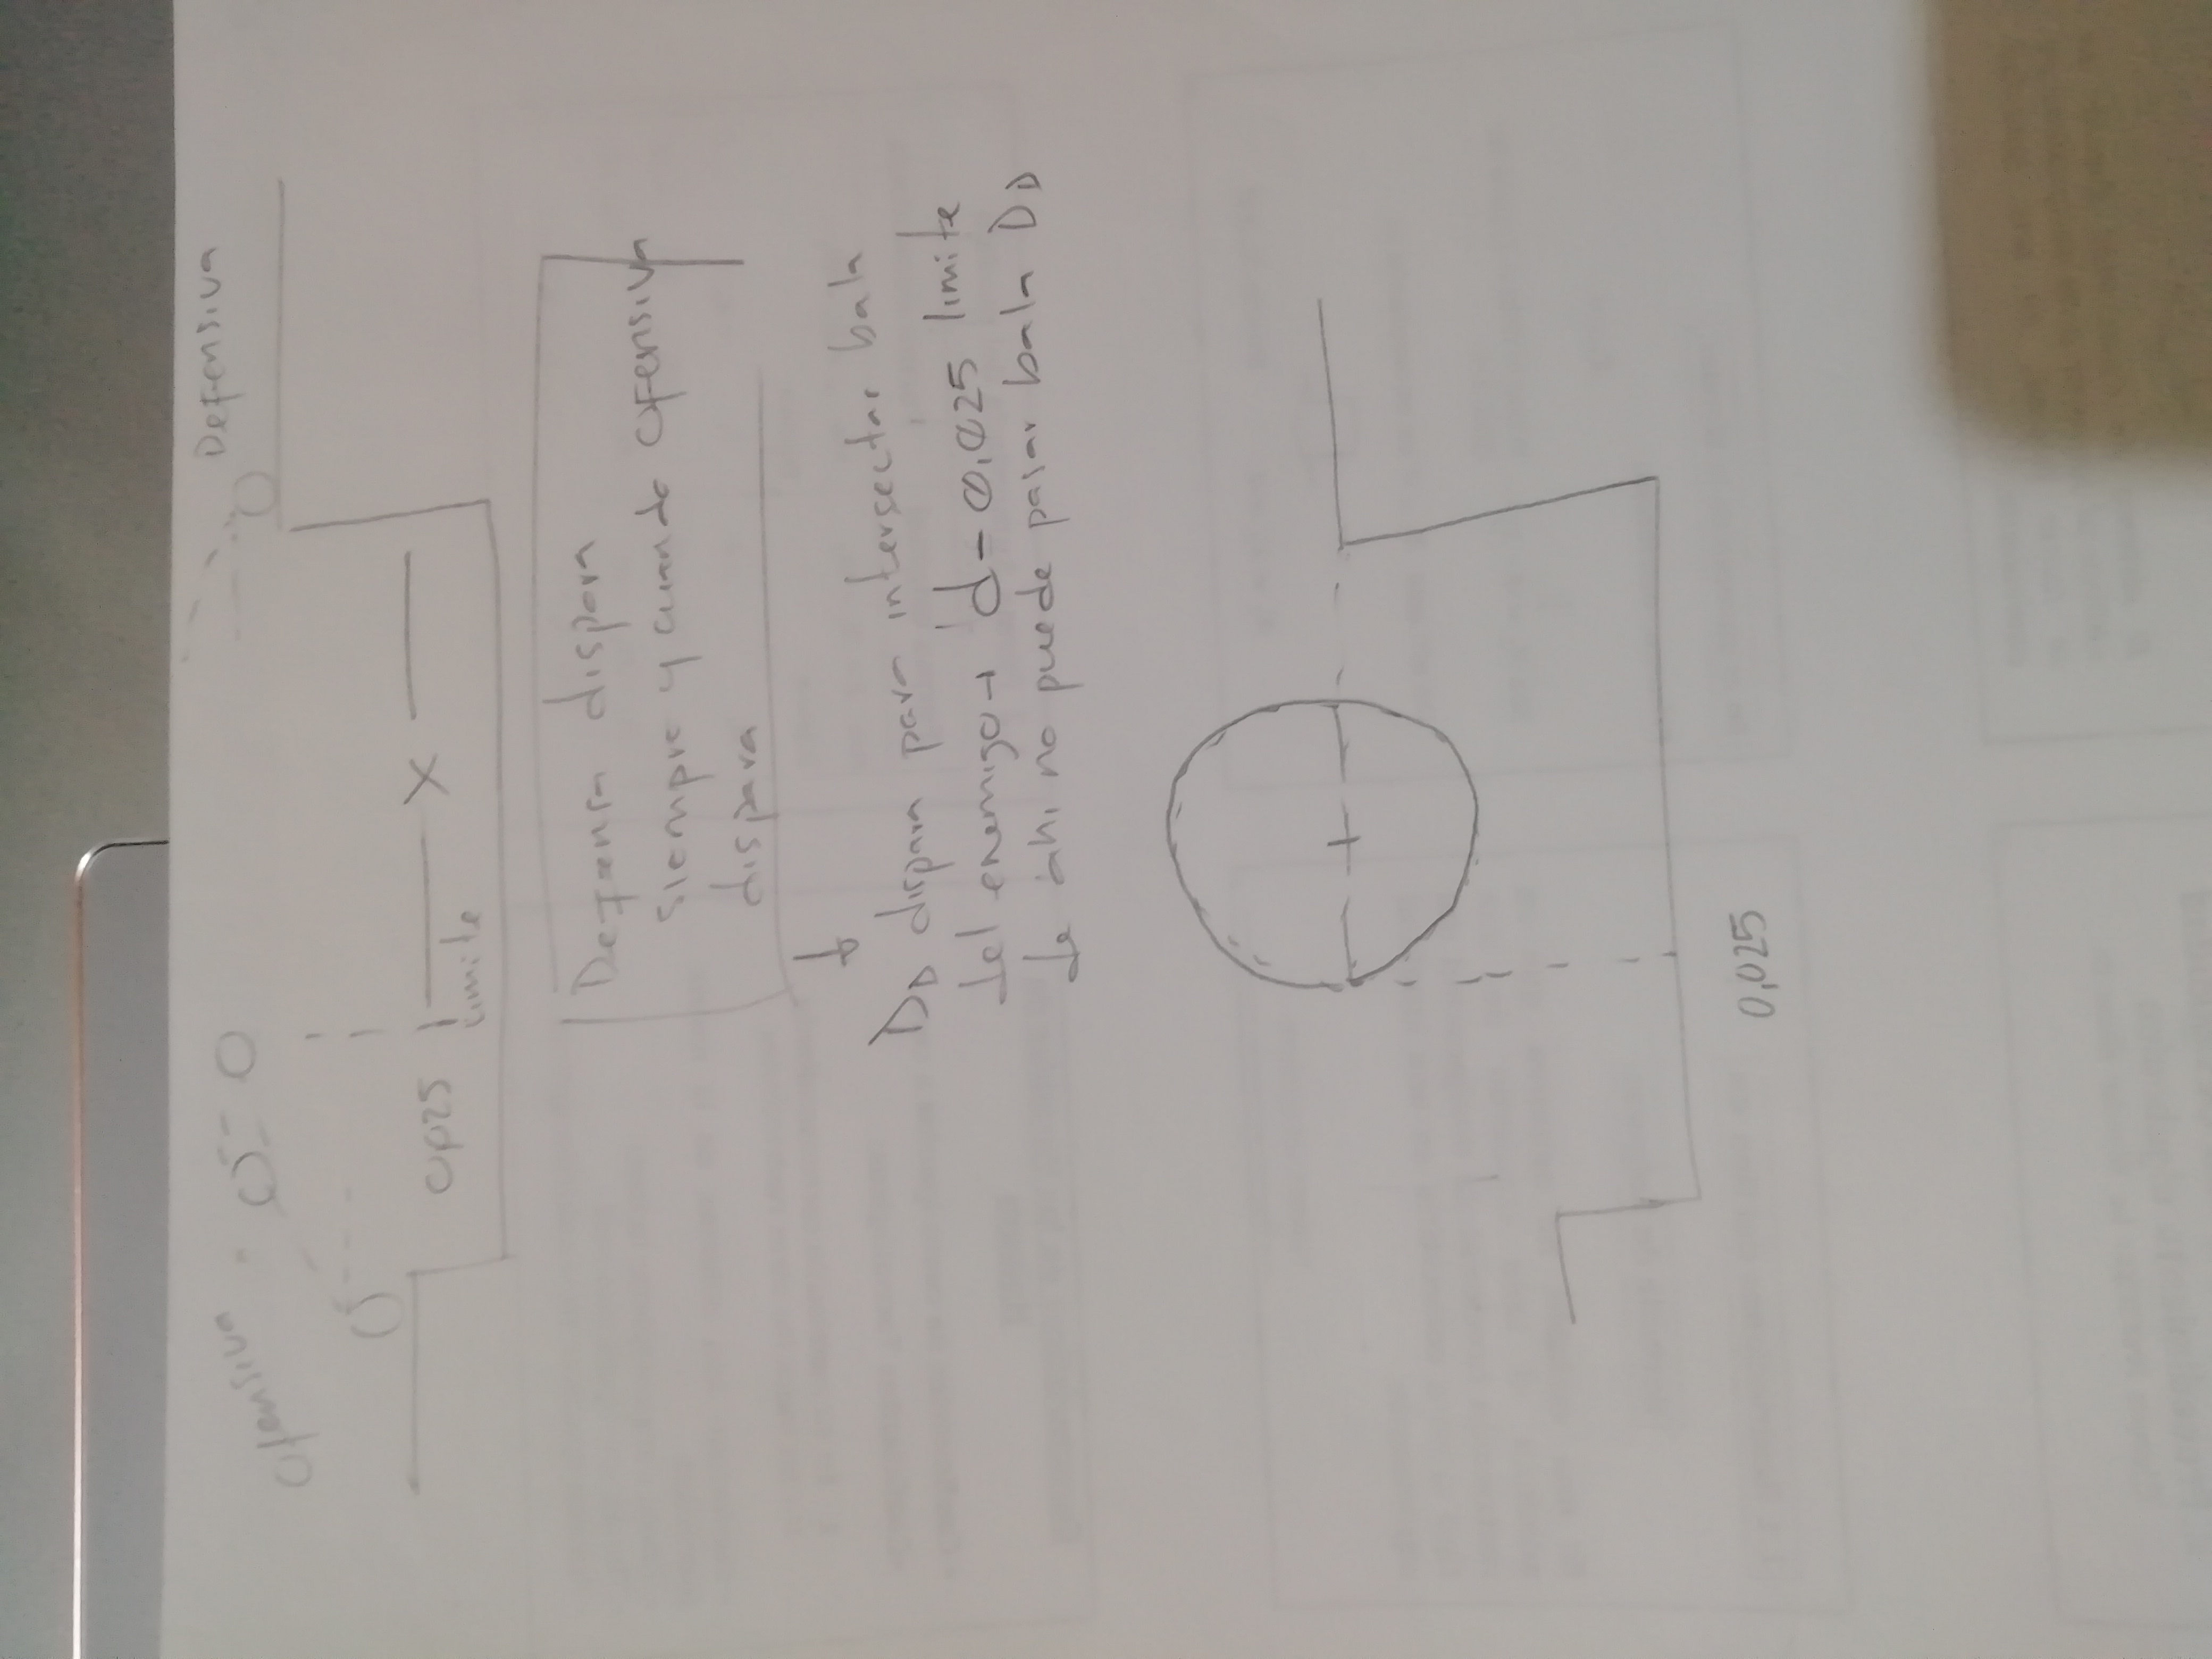 Ofensiva
Defensiva
0,025
limite
X
Defensa dispara
siempre y cuando ofensiva
dispara
DD dispara para intersectar bala
del enemigo → d - 0,025 limite
de ahi no puede pasar bala DD
0,025